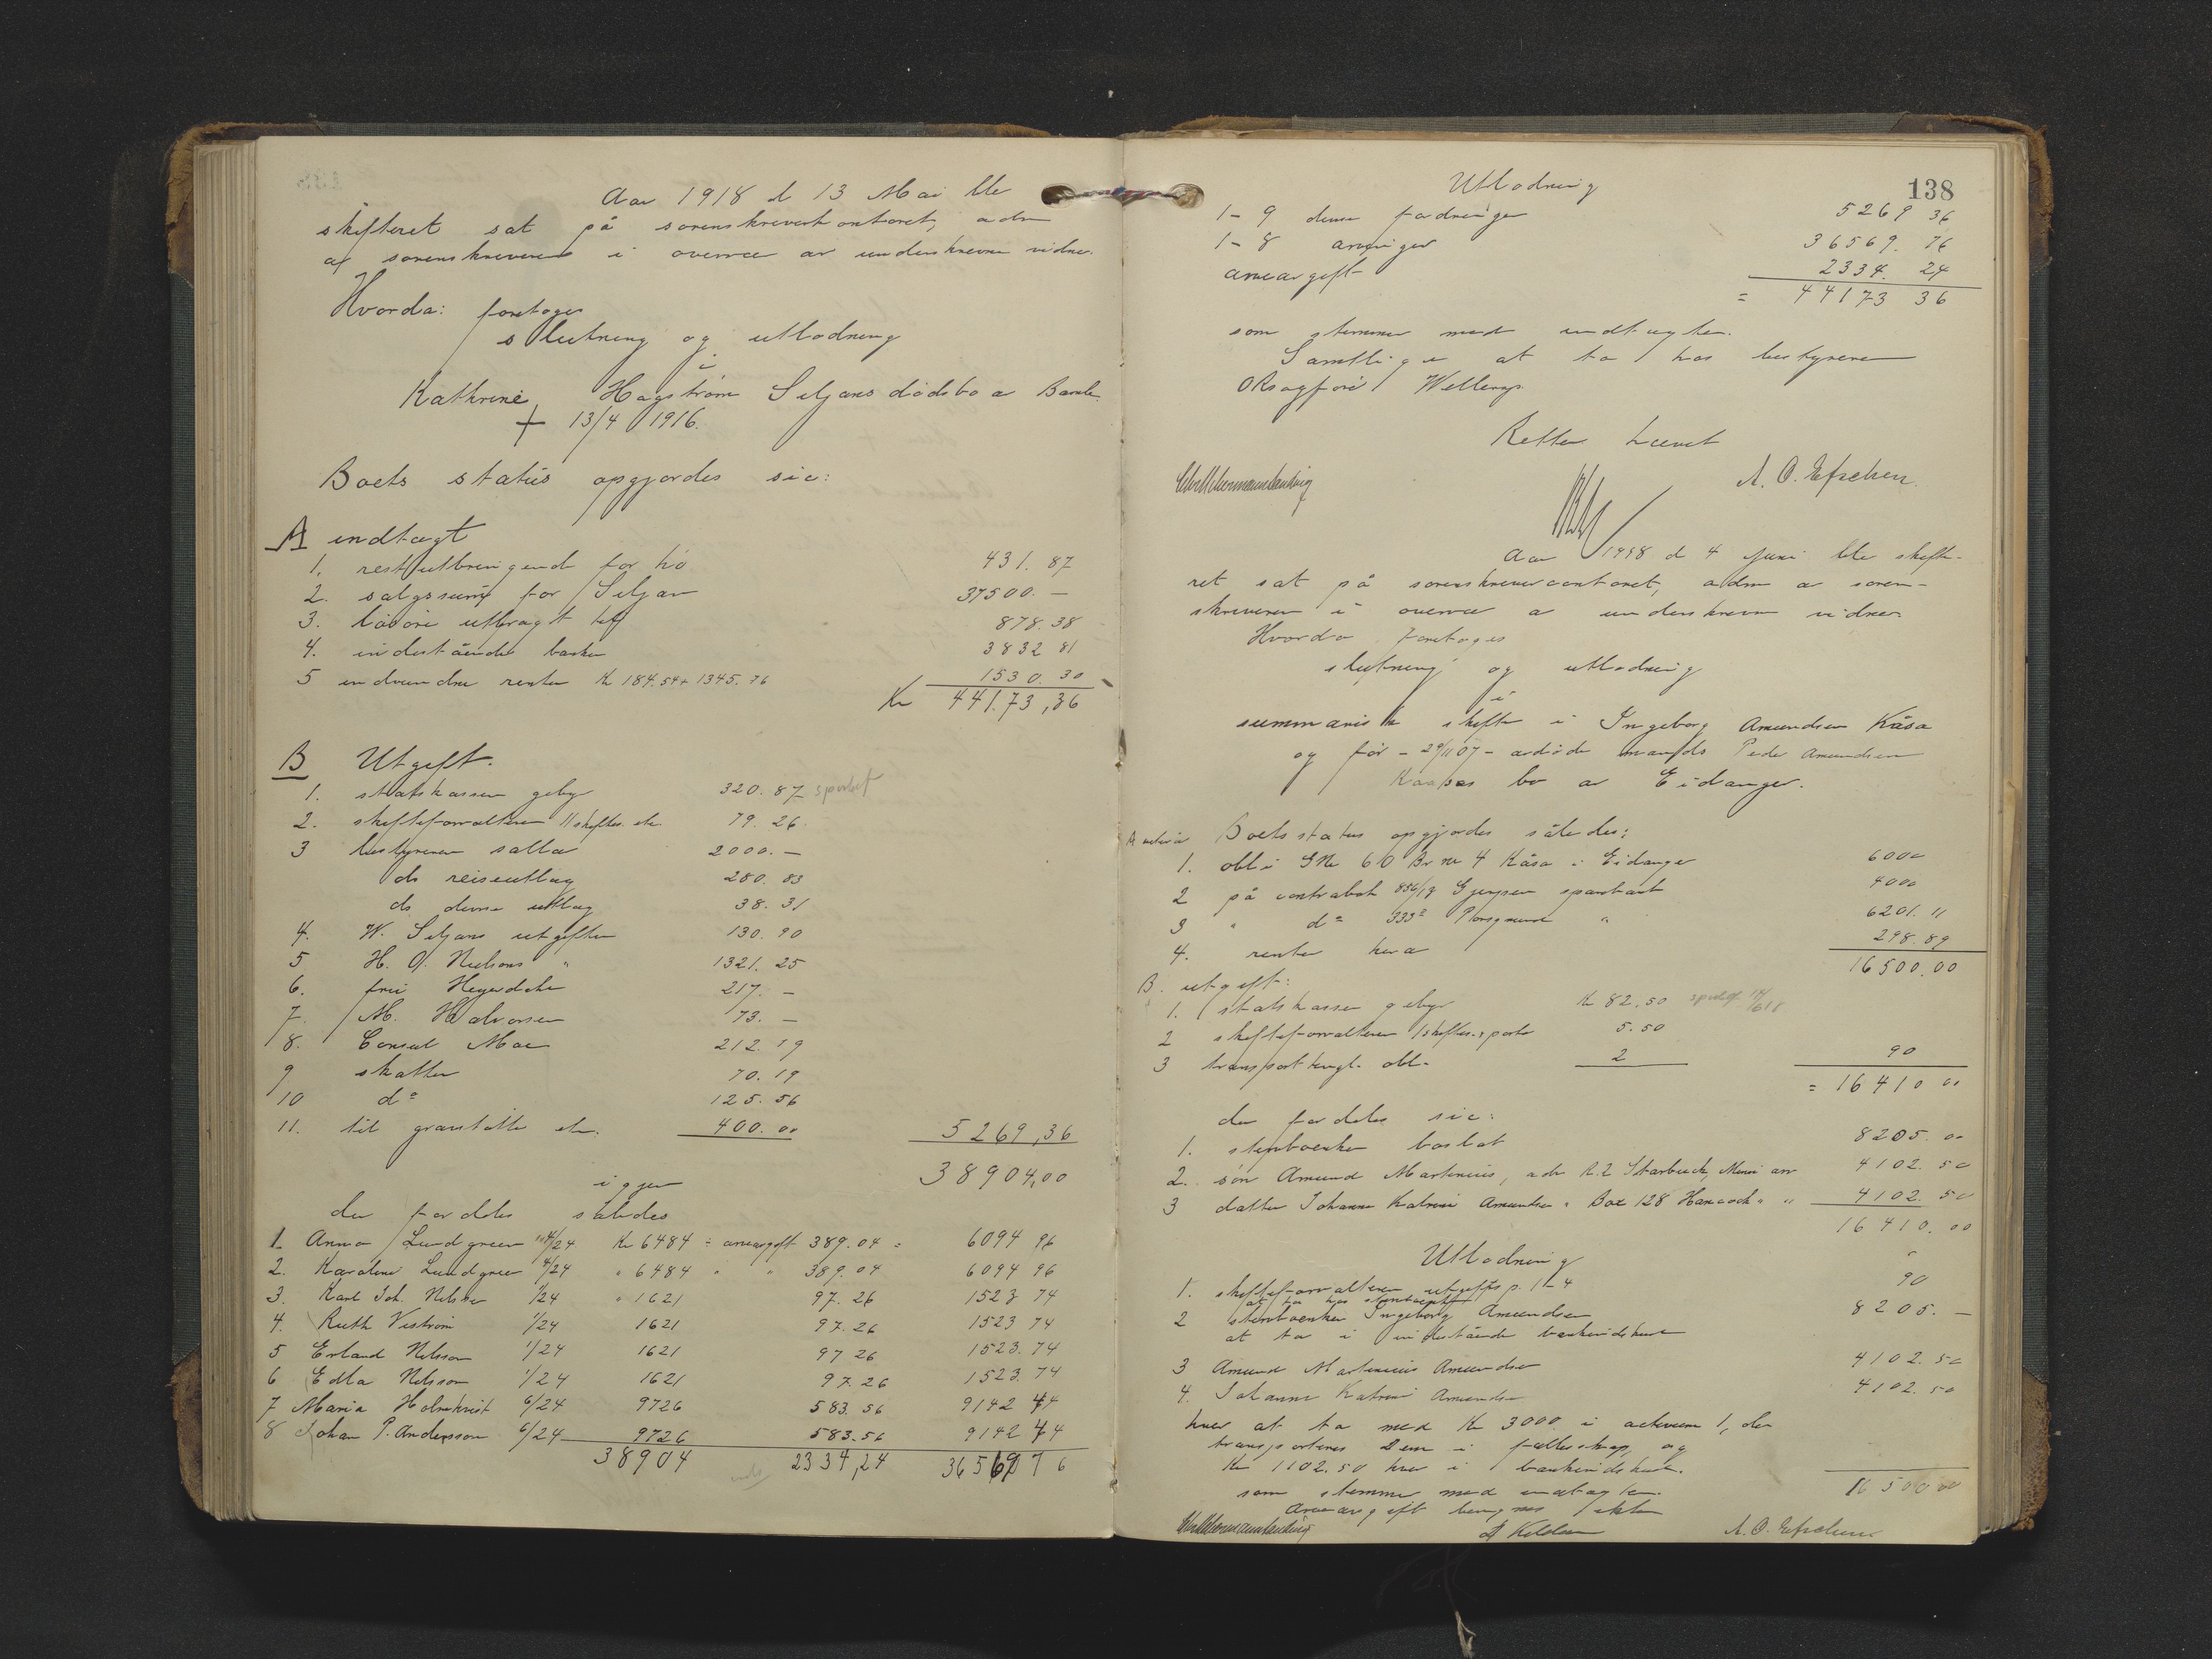 Aar 1918 d 13 Mai ble
skifteret sat på sorenskriverkontoret, adm
af sorenskriveren i overvær av underskrevne vidner.
Hvorda: foretoges
slutning og utlodning
i
Kathrine Hagstrøm Seljans dødsbo a Bamle
+ 13/4 1916.
Boets status opgjordes sic:
A indtægt
1. rest utbringende for hö 431. 87
2. salgssum for Seljan 37500. —
3. lösöre utbragt til 878. 38
4. indestående banken 3832 81
5 indvundne renter Kr 184.54 + 1345. 76 1530. 30
Kr 44173,36
B Utgift.
1. statskassen gebyr 320. 87 sportlet
2. skifteforvalteren 11 skiftes. etc. 79. 26.
3 bestyreren salær 2000. —
do reiseutlæg 280. 83
do diverse utlæg 38. 31
4. W. Seljans utgifter 130. 90
5 H. O. Nielsons " 1321. 25
6. fru Heyerdahl 217. —
7. M. Halvorsen 73. —
8. Consul Moe 212. 19
9 skatter 70. 19
10 do 125. 56
11. til gravstötte etc. 400. 00 5269,36
igjen 38904,00
der fordeles således
1. Anna Lundgreen 4/24 Kr 6484 ÷ arveavgift 389. 04 = 6094 96
2. Karoline Lundgreen 4/24 " 6484 " " 389. 04 6094 96
3. Karl Joh. Nilsson 1/24 " 1621 97. 26 1523 74
4. Ruth Viström 1/24 1621 97. 26 1523 74
5 Erland Nilsson 1/24 1621 97 26 1523. 74
6 Edla Nilsson 1/24 1621 97. 26 1523. 74
7 Maria Holmkvist 6/24 9726 583. 56 9142 44
8 Johan P. Andersson 6/24 9726 583. 56 9142 44
38904 2334,24 36569 76
138
Utlodning
1 - 9 diverse fordringer 5269 36
1 - 8 arvinger 36569. 76
arveavgift 2334. 24
= 44173 36
som stemmer med indtægten.
Samtlige at ta hos bestyreren
ORsagförer Wellerop
Retten hævet
A. O. Efskin.
Aar 1918 d 4 Juni ble skifte-
ret sat på sorenskrivercontoret, adm a soren-
skriveren i overvær a underskrevne vidner
Hvorda foretoges
slutning og utlodning
i
summarisk skifte i Ingeborg Amundsen Kåsa
og før - 29/11 07 - avdöde mands Peder Amundsen
Kaasas bo av Eidanger.
A activa Boets status opgjordes således:
1. obl i GNr 60 Br nr 4 Kåsa i Eidanger 6000
2 på contrabok 856/18 Gjerpen sparebank 4000
3 " do 333 Porsgrund " 6201. 11
4. renter herav 298. 89
16500.00
B. utgift:
1. statskassen gebyr Kr 82,50
2 skifteforvalteren 1 skiftes. + porto 5. 50
3 transport tingl. obl. 2 90
= 16410 00
der fordeles sic:
1. stervboenken boslod 8205. 00
2. sön Amund Martinius, adr R. 2 Starbuck, Minn arv 4102. 50
3 datter Johanne Katrine Amundsen " Box 128 Hancock " " 4102. 50
16410. 00
Utlodning
1. skifteforvalteren utgifts p. 1-4 90
at ta hos stervboenken
2 stervboenken Ingeborg Amundsen 8205. —
at ta i indestående bankindskud
3 Amund Martinius Amundsen 4102. 50
4. Johanne Katrine Amundsen 4102. 50
hver at ta med Kr 3000 i activum 1, der
transporteres dem i fællesskap, og
Kr 1102. 50 hver i bankindskud.
som stemmer med indtægten. 16500 00
Arveavgift beregnes ikke
A. O. Efskin